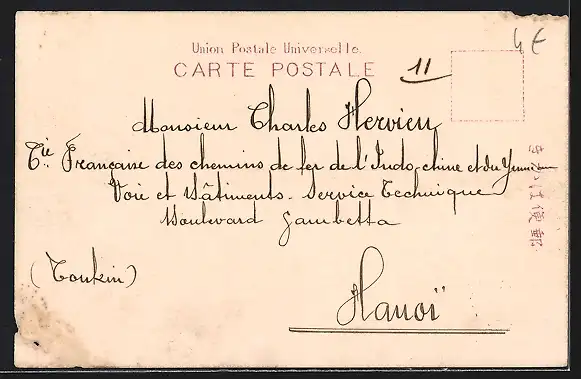 Union Postale Universelle.
CARTE POSTALE
4 €
11
Monsieur Charles Hervieu
Cie Française des chemins de fer de l'Indo-chine et du Yunnan
Voie et Bâtiments - Service Technique
Boulevard Gambetta
(Tonkin)
Hanoï
きかは便郵